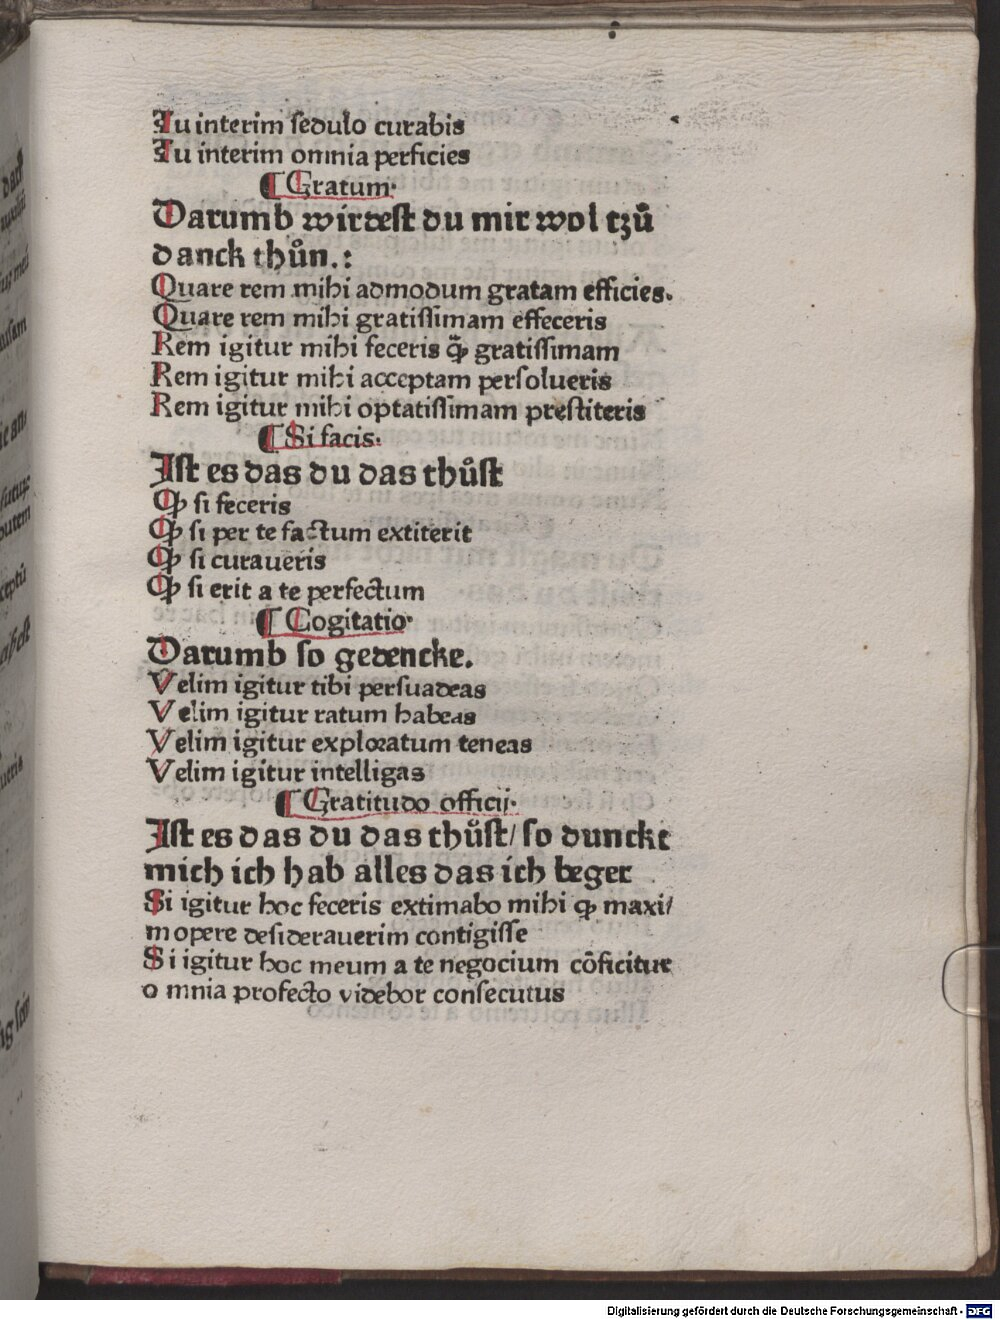 Tu interim sedulo curabis
Tu interim omnia perficies
¶ Gratum·
Darumb wirdest du mir wol tzů
danck thůn.:
Quare rem mihi admodum gratam efficies.
Quare rem mihi gratissimam effeceris
Rem igitur mihi feceris qͣ̃ gratissimam
Rem igitur mihi acceptam persolueris
Rem igitur mihi optatissimam prestiteris
¶ Si facis·
Ist es das du das thůst
Ꝙ si feceris
Ꝙ si per te factum extiterit
Ꝙ si curaueris
Ꝙ si erit a te perfectum
¶ Cogitatio·
Darumb so gedencke.
Velim igitur tibi persuadeas
Velim igitur ratum habeas
Velim igitur exploratum teneas
Velim igitur intelligas
¶ Gratitudo officij·
Ist es das du das thůst/ so duncke
mich ich hab alles das ich beger
Si igitur hoc feceris extimabo mihi ꝙ maxi/
mopere desiderauerim contigisse
Si igitur hoc meum a te negocium cōficitur
omnia profecto videbor consecutus
Digitalisierung gefördert durch die Deutsche Forschungsgemeinschaft - DFG